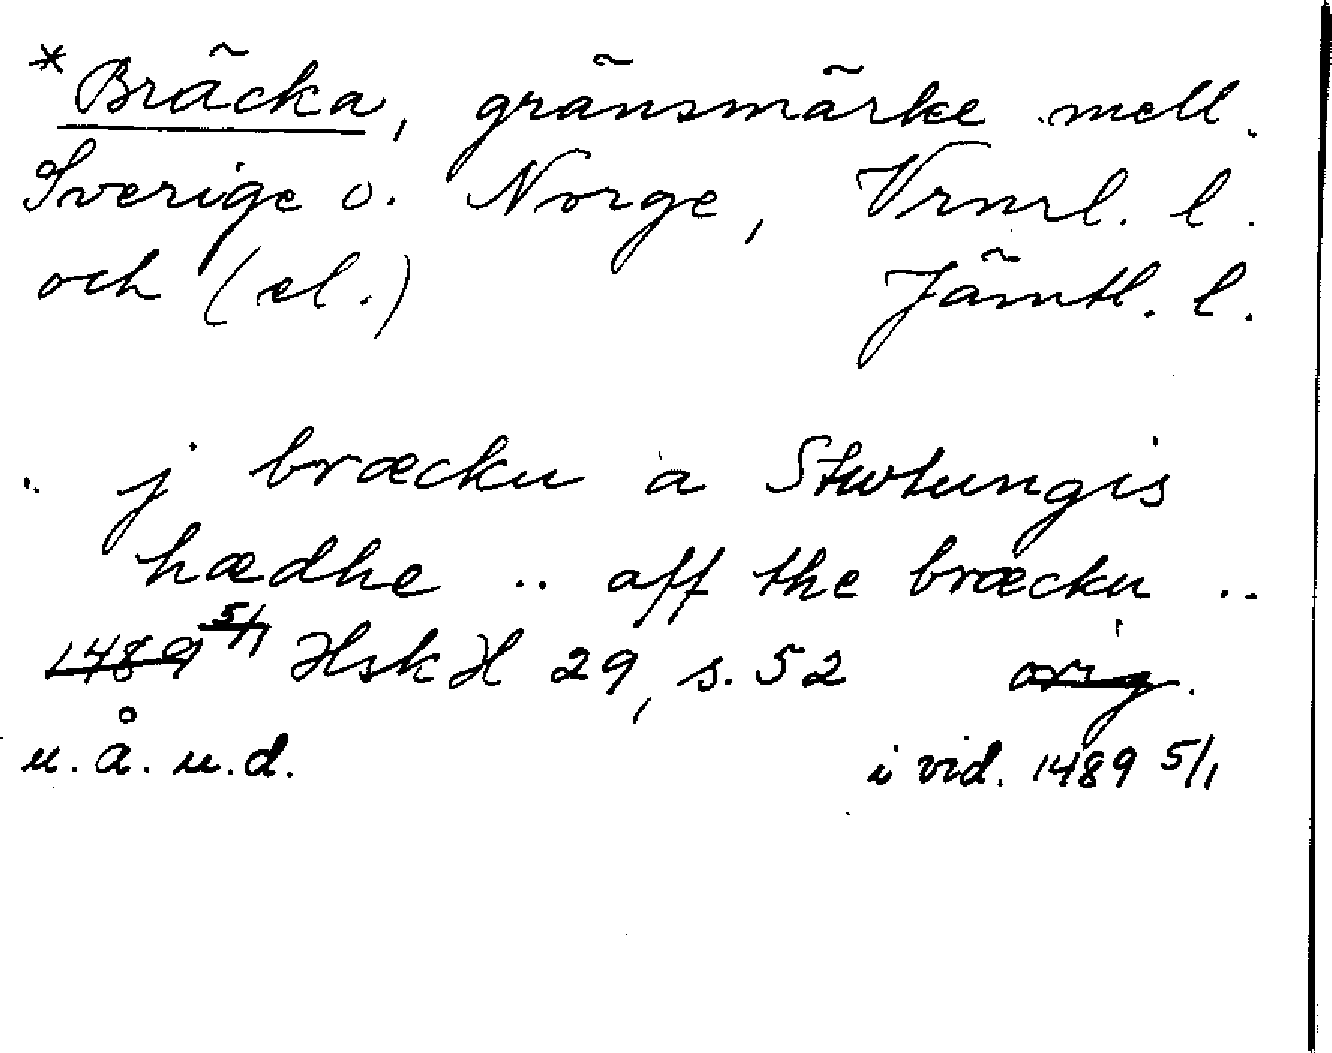 * Bräcka, gränsmärke mell.
Sverige o. Norge, Vrml. l.
och (el.) Jämtl. l.
.. j bræcku a Stwtungis
hædhe .. aff the bræcku ..
1489 5/1 HskH 29, s. 52 orig.
u. å. u. d. i vid. 1489 5/1